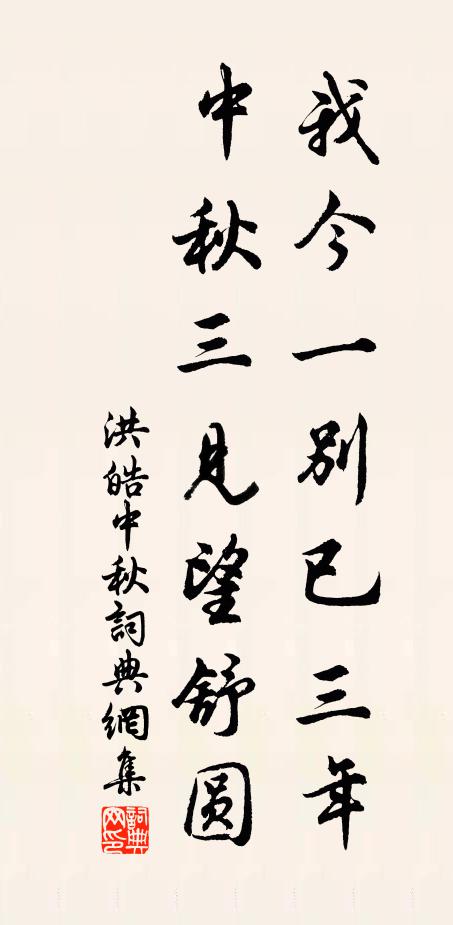 我今一别已三年
中秋三見望舒圆
洪皓中秋詞典網集
詞典网印